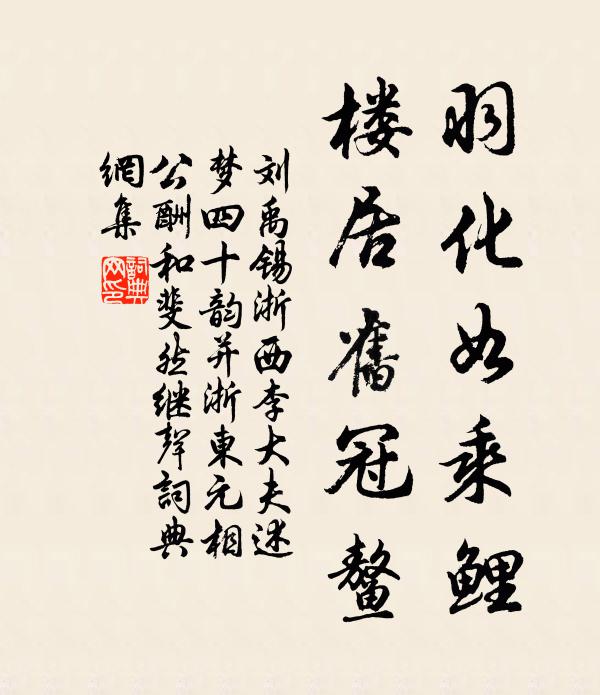 羽化如乘鲤
楼居舊冠鳌
刘禹锡浙西李大夫述
梦四十韵并浙東元相
公酬和斐然继聲詞典
網集
詞典
网印